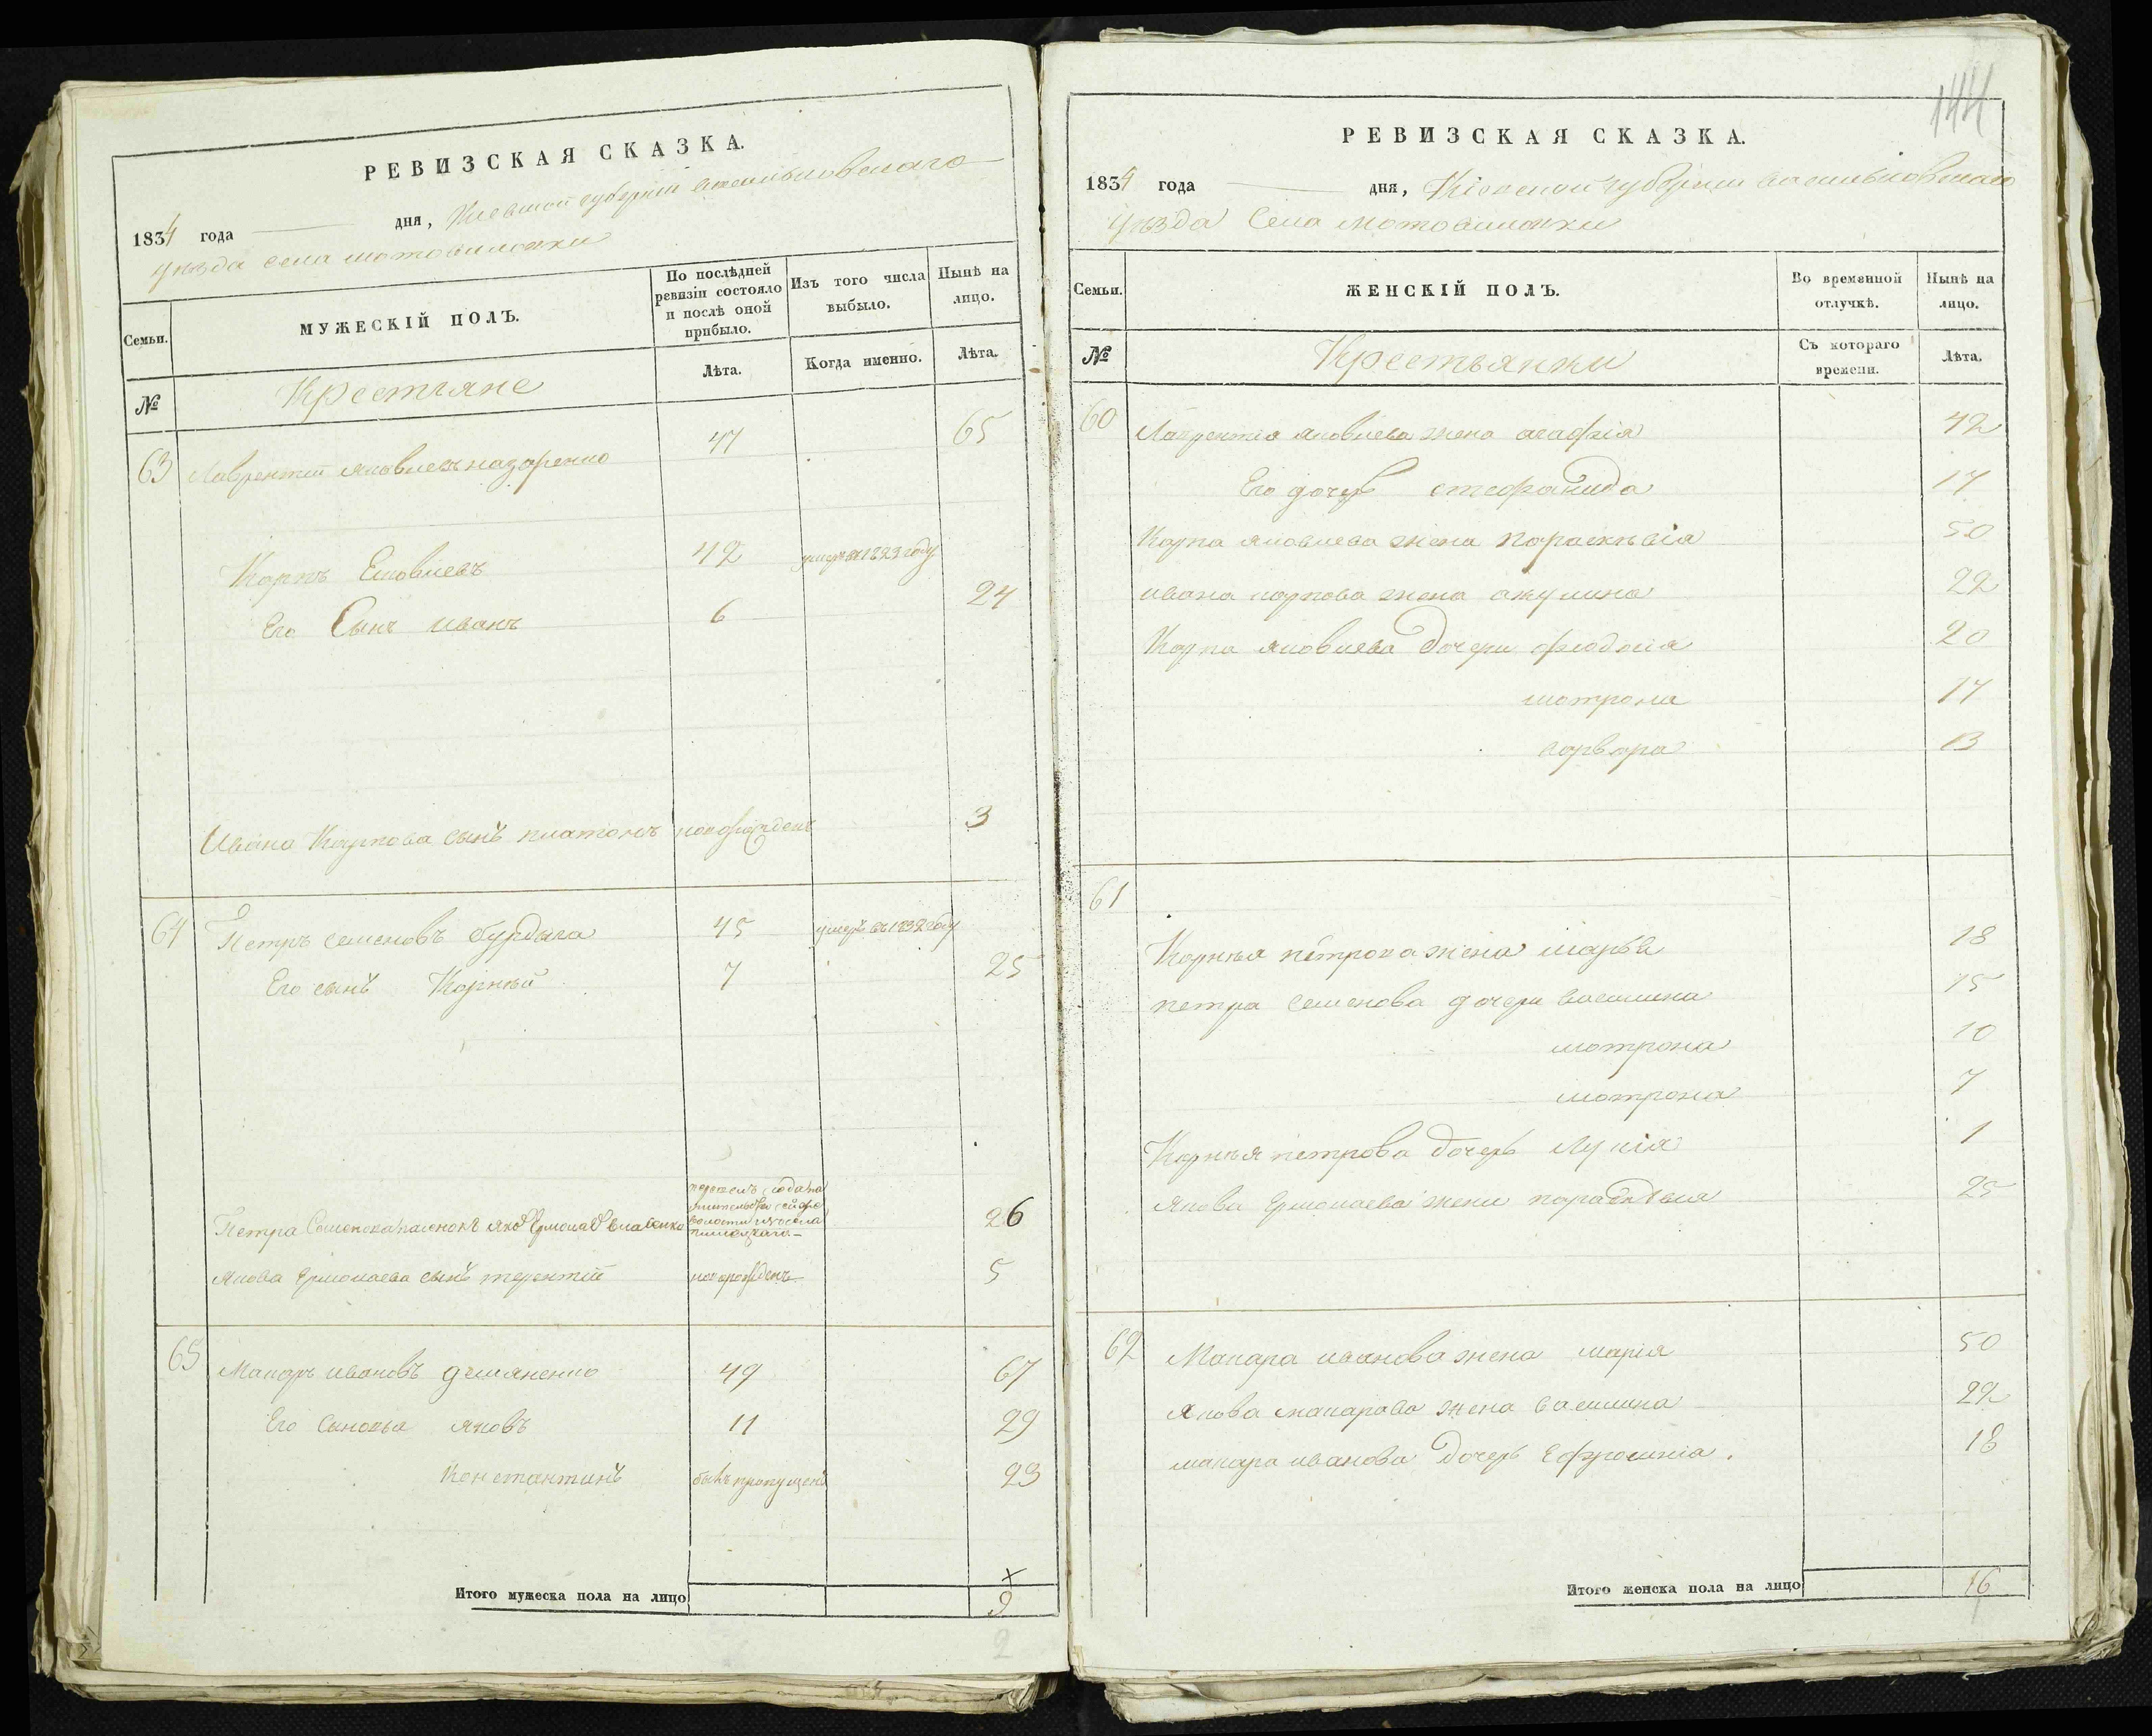 РЕВИЗСКАЯ СКАЗКА.
1834 года дня, Киевской губернии васильковскаго
уезда села мотовиловки
Семьи.
МУЖЕСКІЙ ПОЛЪ.
По послѣдней ревизіи состояло и послѣ оной прибыло.
Изъ того числа выбыло.
Нынѣ на лицо.
№
Крестяне
Лѣта.
Когда именно.
Лѣта.
63 Лаврентий Яковлевъ назаренко 47 65
Карпъ Яковлевъ 42 умеръ въ 1823 году
Его Сынъ иванъ 6 24
Ивана Карпова сынъ платонъ новорожденъ 3
64 Петръ семеновъ бурдыга 45 умеръ въ 1832 году
Его сынъ Корнѣй 7 25
Петра Семенова 26
Якова Ермолаева сынъ терентий новорожденъ 5
65 Макаръ ивановъ демяненко 49 67
Его Сыновья яковъ 11 29
Константинъ былъ пропущенъ 23
Итого мужеска пола на лицо 9
2
144
РЕВИЗСКАЯ СКАЗКА.
1834 года дня, Кіевской губернии васильковскаго
уезда Села мотовиловки
Семьи.
ЖЕНСКІЙ ПОЛЪ.
Во временной отлучкѣ.
Нынѣ на лицо.
№
Крестьянки
Съ котораго времени.
Лѣта.
60 Лаврентія яковлева жена агафія 42
Его дочерь стефанида 17
Карпа яковлева жена параскѣвія 50
ивана карпова жена акулина 22
Карпа яковлева дочери феодосія 20
мотрона 17
варвара 13
61
Корнѣя петрова жена марья 18
петра семенова дочери василина 15
мотрона 10
мотрона 7
Корнѣя петрова дочерь Лукія 1
Якова Ермолаева жена параскѣвия 25
62 Макара иванова жена марія 50
Якова макарова жена василина 22
макара иванова дочерь Ефросинія. 18
Итого женска пола на лицо 16